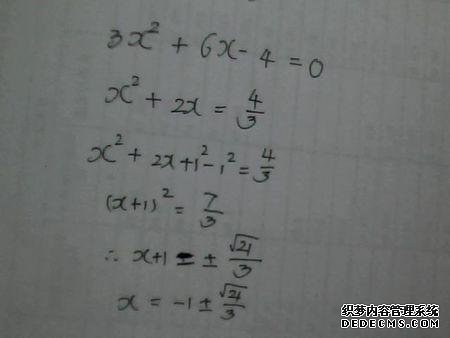 3x² + 6x - 4 = 0
x² + 2x = 4/3
x² + 2x + 1² - 1² = 4/3
(x+1)² = 7/3
∴ x+1 = ± √21/3
x = -1 ± √21/3
织梦内容管理系统
DEDECMS.COM